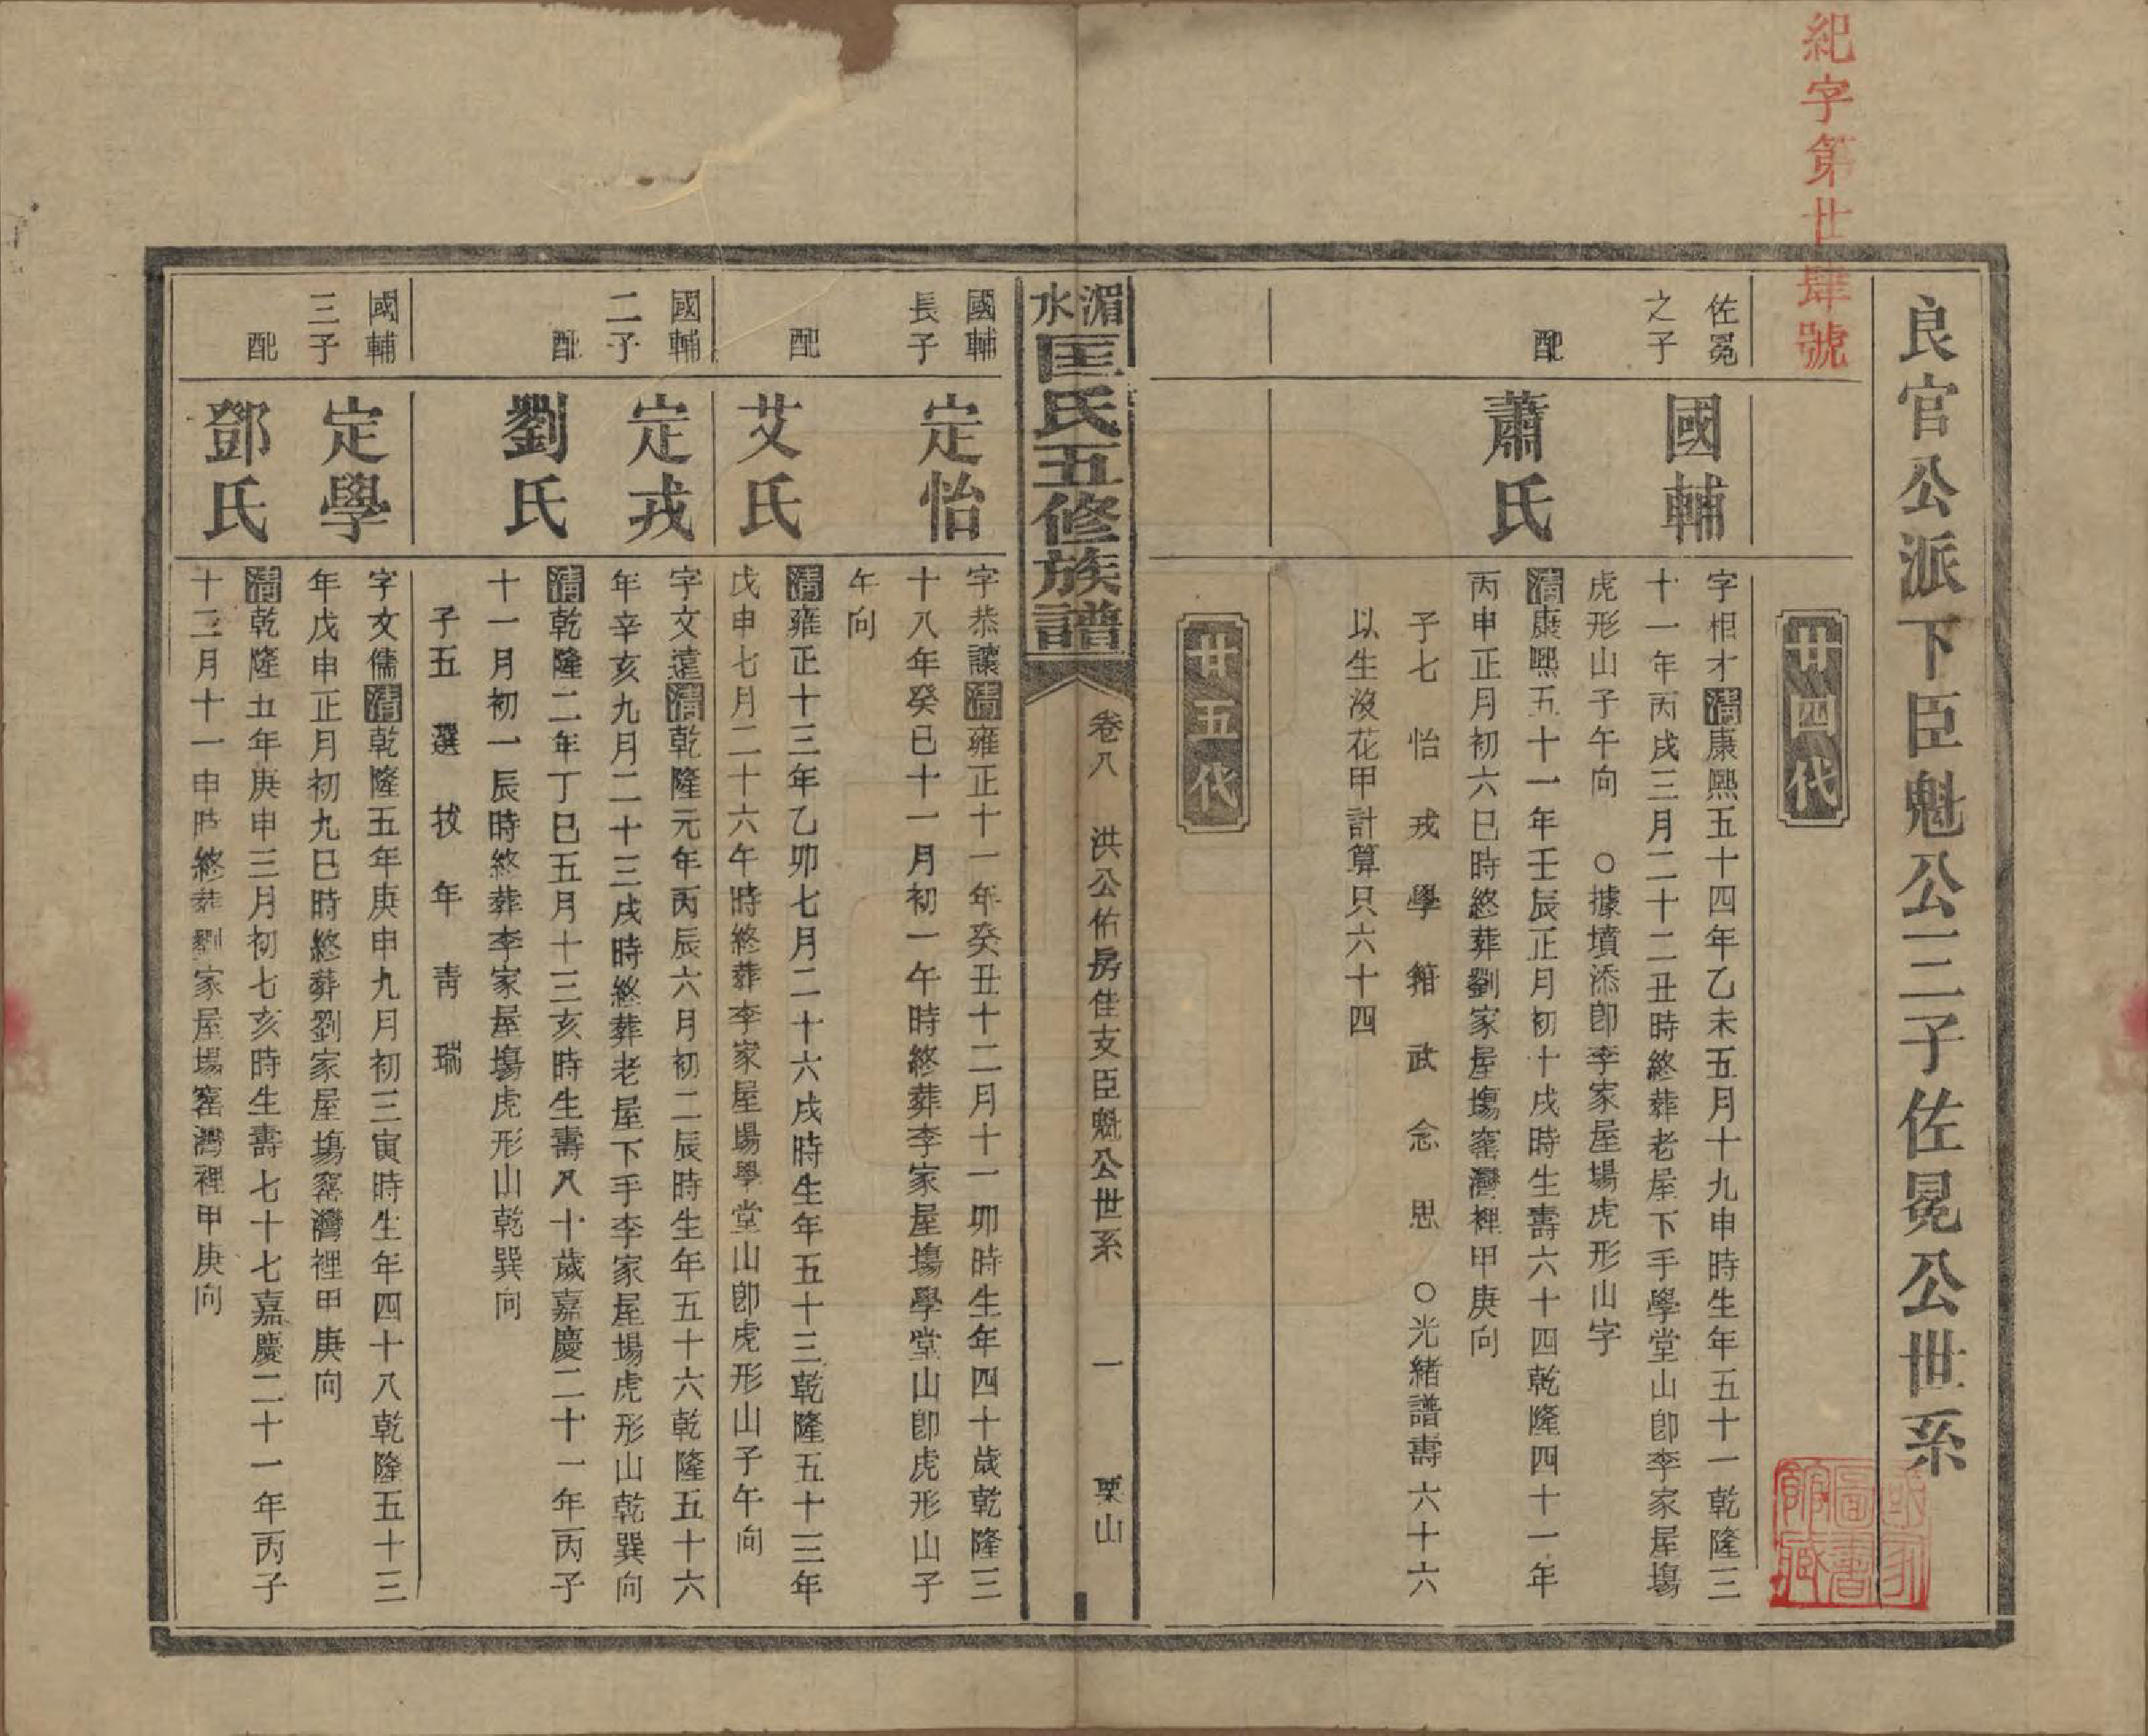 紀字第廿肆號
良官公派下臣魁公三子佐冕公世系
廿四代
佐冕
之子
國輔
字相才清康熙五十四年乙未五月十九申時生年五十一乾隆三
十一年丙戌三月二十二丑時終葬老屋下手學堂山卽李家屋塲
虎形山子午向　○據墳添卽李家屋場虎形山字
配
蕭氏
清康熙五十一年壬辰正月初十戌時生壽六十四乾隆四十一年
丙申正月初六巳時終葬劉家屋塲窰灣裡甲庚向
子七　怡　戎　學　籍　武　念　思　○光緒譜壽六十六
以生沒花甲計算只六十四
廿五代
湄水匡氏五修族譜
卷八　洪公佑房佳支臣魁公世系　一　栗山
國輔
長子
定怡
字恭讓清雍正十一年癸丑十二月十一卯時生年四十歲乾隆三
十八年癸巳十一月初一午時終葬李家屋塲學堂山卽虎形山子
午向
配
艾氏
清雍正十三年乙卯七月二十六戌時生年五十三乾隆五十三年
戊申七月二十六午時終葬李家屋場學堂山卽虎形山子午向
國輔
二子
定戎
字文遠清乾隆元年丙辰六月初二辰時生年五十六乾隆五十六
年辛亥九月二十三戌時終葬老屋下手李家屋場虎形山乾巽向
配
劉氏
清乾隆二年丁巳五月十三亥時生壽八十歲嘉慶二十一年丙子
十一月初一辰時終葬李家屋塲虎形山乾巽向
子五　選　拔　年　青　瑞
國輔
三子
定學
字文儒清乾隆五年庚申九月初三寅時生年四十八乾隆五十三
年戊申正月初九巳時終葬劉家屋塲窰灣裡甲庚向
配
鄧氏
清乾隆五年庚申三月初七亥時生壽七十七嘉慶二十一年丙子
十二月十一申時終葬劉家屋場窰灣裡甲庚向
國家
圖書
館藏